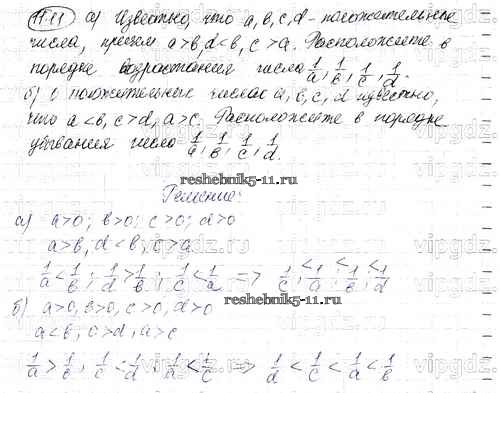 11.11 а) Известно, что a, b, c, d - положительные
числа, причем a > b, d < b, c > a. Расположите в
порядке возрастания числа 1/a, 1/b, 1/c, 1/d.
б) О положительных числах a, b, c, d известно,
что a < b, c > d, a > c. Расположите в порядке
убывания числа 1/a, 1/b, 1/c, 1/d.
reshebnik5-11.ru
Решение:
а) a>0; b>0; c>0; d>0
a>b, d<b, c>a
1/a < 1/b; 1/d > 1/b; 1/c < 1/a => 1/c < 1/a < 1/b < 1/d
reshebnik5-11.ru
б) a>0, b>0, c>0, d>0
a<b, c>d, a>c
1/a > 1/b, 1/c < 1/d, 1/a < 1/c => 1/d < 1/c < 1/a < 1/b
vipgdz